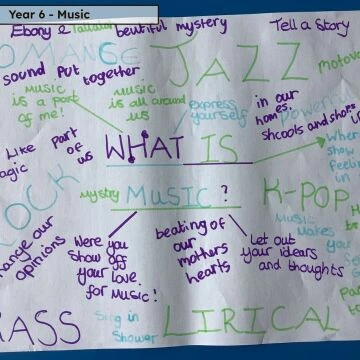 Year 6 - Music
Ebony &
beutiful mystery
Tell a Story
OMANCE
JAZZ
motova
sound Put together
music
is a part
of me!
music
is all around
us
express
yourself
in our
homes,
shcools and shoes
Powerful
Like
agic
Part
of
us
WHAT IS
MUSIC ?
When
show
feeling
in
OCK
mystry
K-POP
hange our
opinions
Were you
show off
your Love
for music!
beating of
our
mothers
hearts
Let out
your idears
and thoughts
Music
Makes
your
RASS
Sing in
Shower
LIRICAL